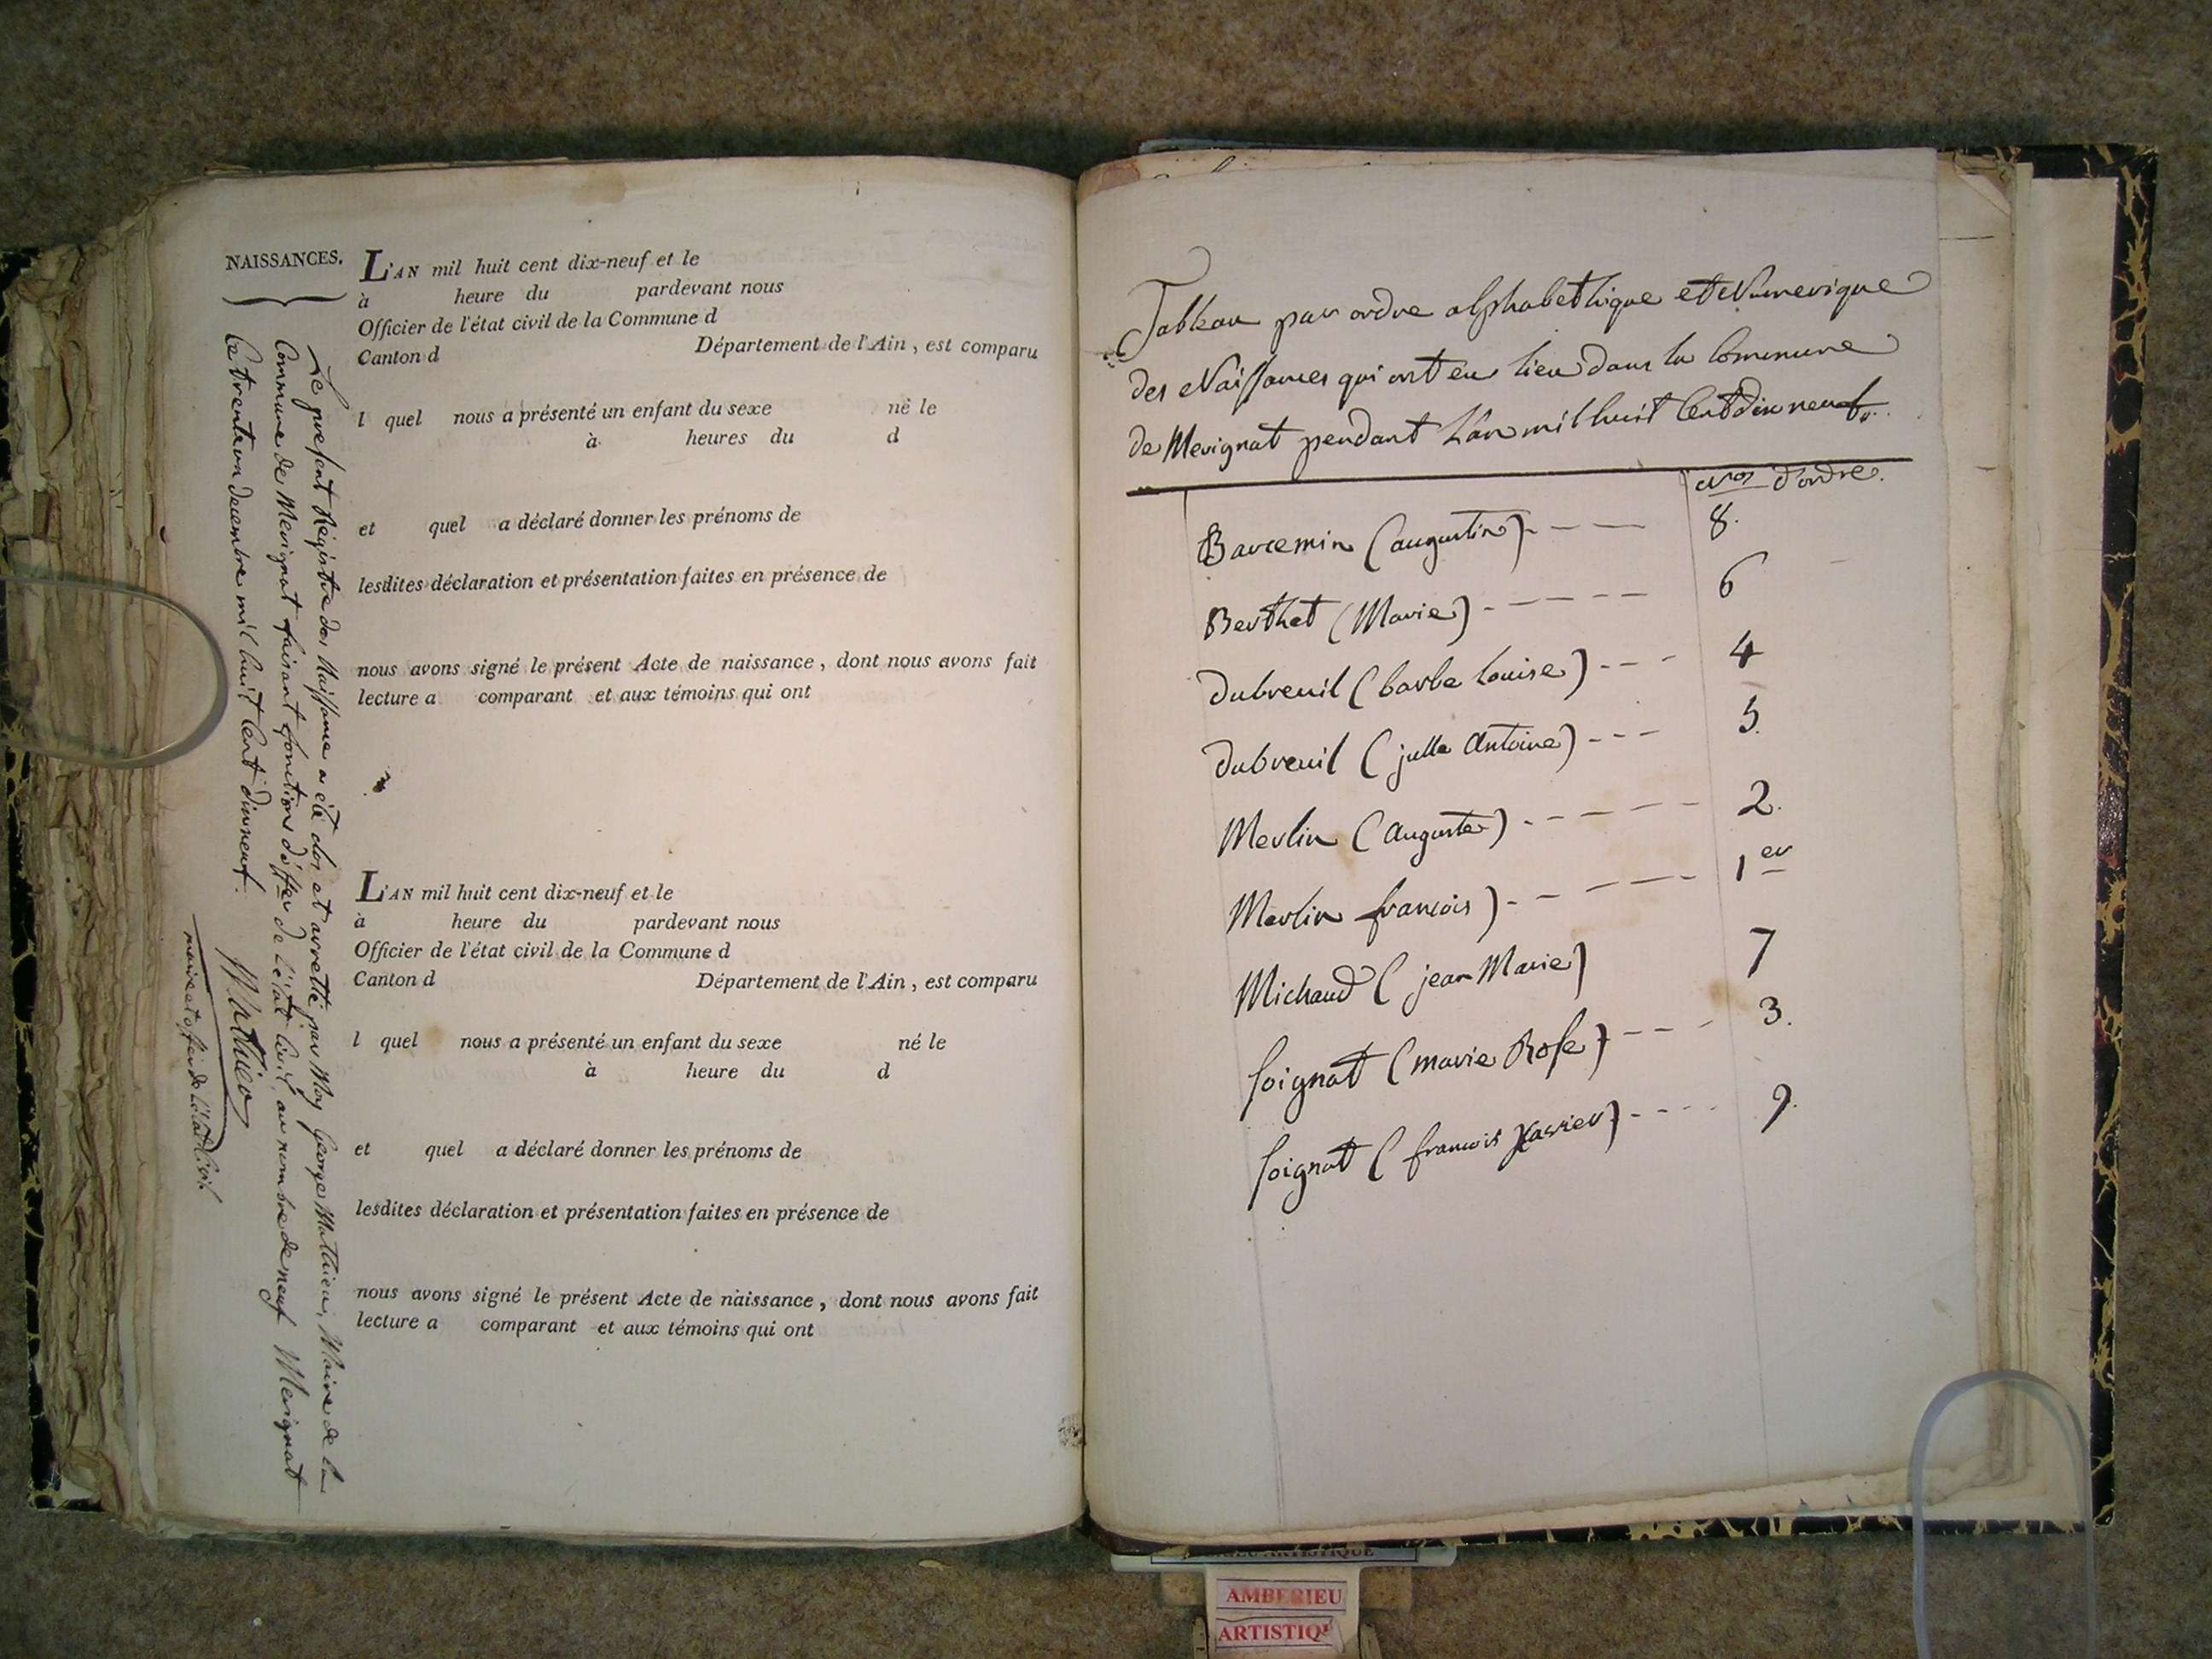 NAISSANCES.
L'AN mil huit cent dix-neuf et le
à heure du pardevant nous
Officier de l'état civil de la Commune d
Canton d Département de l'Ain , est comparu
l quel nous a présenté un enfant du sexe né le
à heures du d
et quel a déclaré donner les prénoms de
lesdites déclaration et présentation faites en présence de
nous avons signé le présent Acte de naissance , dont nous avons fait
lecture a comparant et aux témoins qui ont
L'AN mil huit cent dix-neuf et le
à heure du pardevant nous
Officier de l'état civil de la Commune d
Canton d Département de l'Ain , est comparu
l quel nous a présenté un enfant du sexe né le
à heure du d
et quel a déclaré donner les prénoms de
lesdites déclaration et présentation faites en présence de
nous avons signé le présent Acte de naissance , dont nous avons fait
lecture a comparant et aux témoins qui ont
Le present Régistre des Naissance a été clos et arretté par Moy George Mathieu, Maire de la
Commune de Merignat faisant fonctions d'offer de l'état Civil, au nombre de neuf Merignat
le trente un decembre mil huit Cent dixneuf.
Mathieu
maire et offer de l'état Civil
Tableau par ordre alphabethique et Numerique
des Naissances qui ont eu lieu dans la Commune
de Merignat pendant L'an mil huit Cent dix neuf.
Nos d'ordre.
Barcemin (augustin) - — — 8.
Berthet (Marie) - — — — — 6
Dubreuil (barbe Louise) - - - - 4
Dubreuil (julle Antoine) - - - 5.
Merlin (Auguste) - - — — — — 2.
Merlin francois) - — — — — 1er
Michaud (jean Marie) 7
Soignat (marie Rose) - — - - 3.
Soignat (francois Xavier) - - - - 9.
AMBERIEU
ARTISTIQ